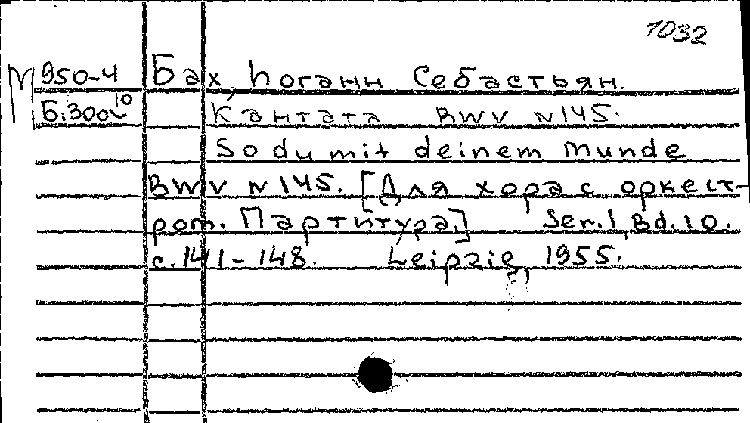 1032
М950-4 Бах, Иоганн Себастьян.
Б.300и¹⁰ Кантата BWV N145.
So du mit deinem Munde
BWV N145. [Для хора с оркест-
ром. Партитура.] Ser.1, Bd.10.
с.141-148. Leipzig, 1955.